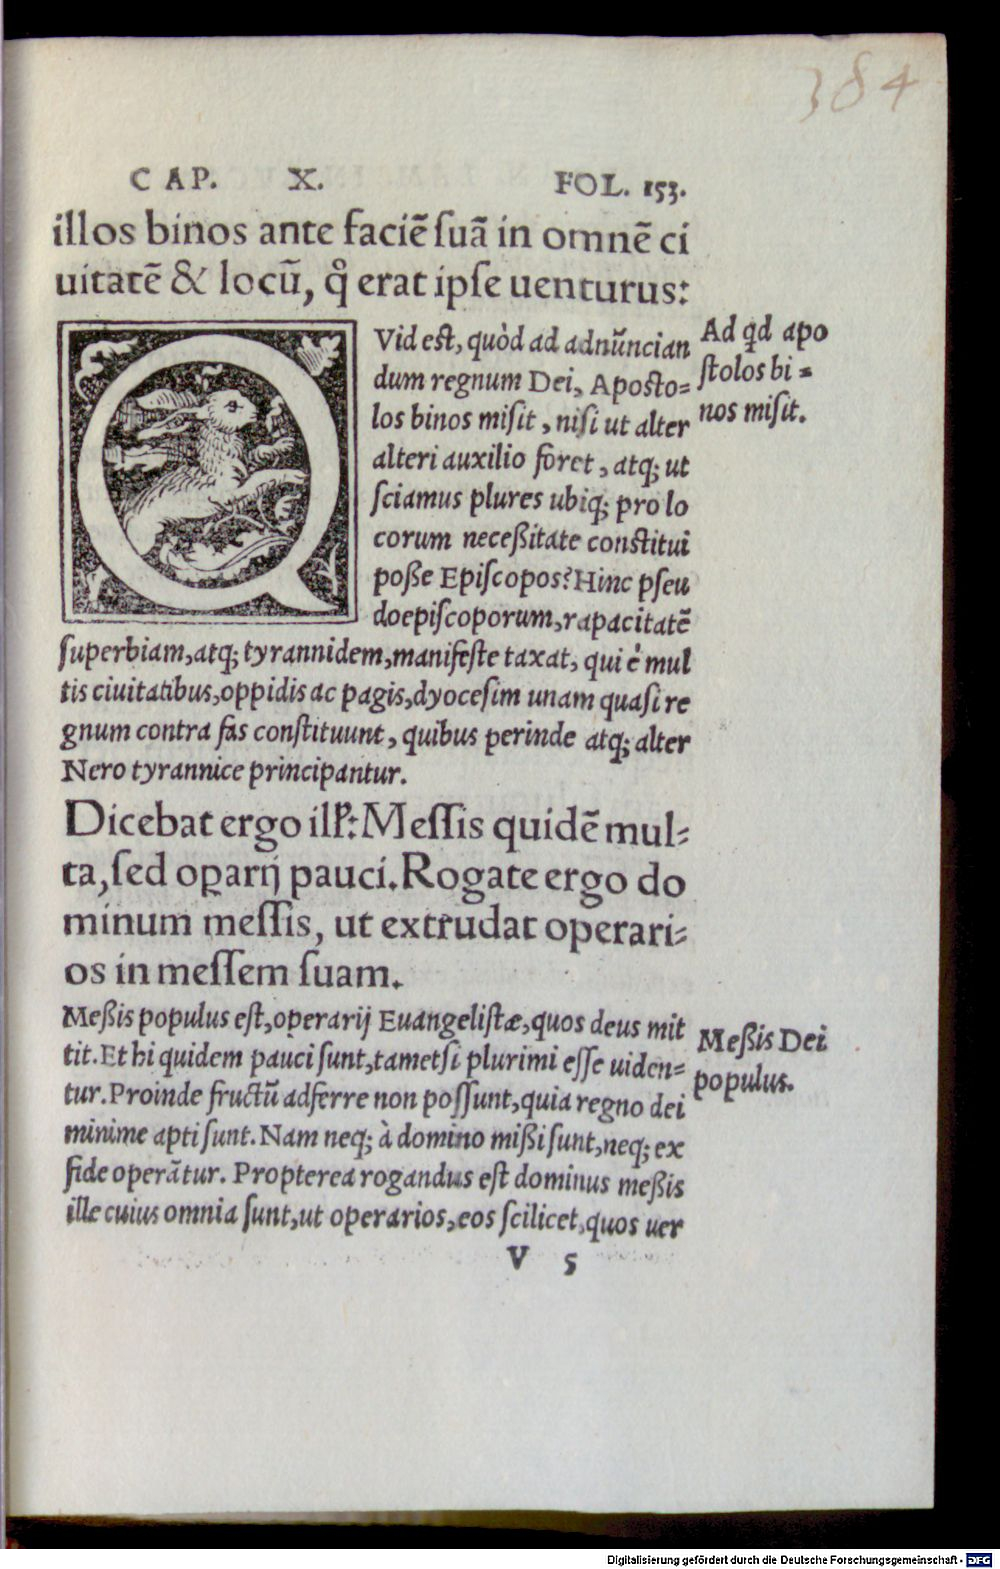 384
CAP. X. FOL. 153.
illos binos ante faciẽ ſuã in omnẽ ci
uitatẽ & locũ, qͦ erat ipſe uenturus:
QVid est, quòd ad adnũncian
dum regnum Dei, Aposto=
los binos miſit, niſi ut alter
alteri auxilio foret, atq; ut
ſciamus plures ubiq; pro lo
corum neceßitate constitui
poße Epiſcopos? Hinc pſeu
doepiſcoporum, rapacitatẽ
ſuperbiam, atq; tyrannidem, manifeste taxat, qui ẽ mul
tis ciuitatibus, oppidis ac pagis, dyoceſim unam quaſi re
gnum contra fas conſtituunt, quibus perinde atq; alter
Nero tyrannice principantur.
Ad qd apo
ſtolos bi=
nos miſit.
Dicebat ergo illꝭ: Meſſis quidẽ mul=
ta, ſed oꝑarij pauci. Rogate ergo do
minum meſſis, ut extrudat operari=
os in meſſem ſuam.
Meßis populus eſt, operarij Euangeliſtæ, quos deus mit
tit. Et hi quidem pauci ſunt, tametſi plurimi eſſe uiden=
tur. Proinde fructũ adferre non poſſunt, quia regno dei
minime apti ſunt. Nam neq; à domino mißi ſunt, neq; ex
fide operãtur. Propterea rogandus eſt dominus meßis
ille cuius omnia ſunt, ut operarios, eos ſcilicet, quos uer
Meßis Dei
populus.
V 5
Digitalisierung gefördert durch die Deutsche Forschungsgemeinschaft - DFG